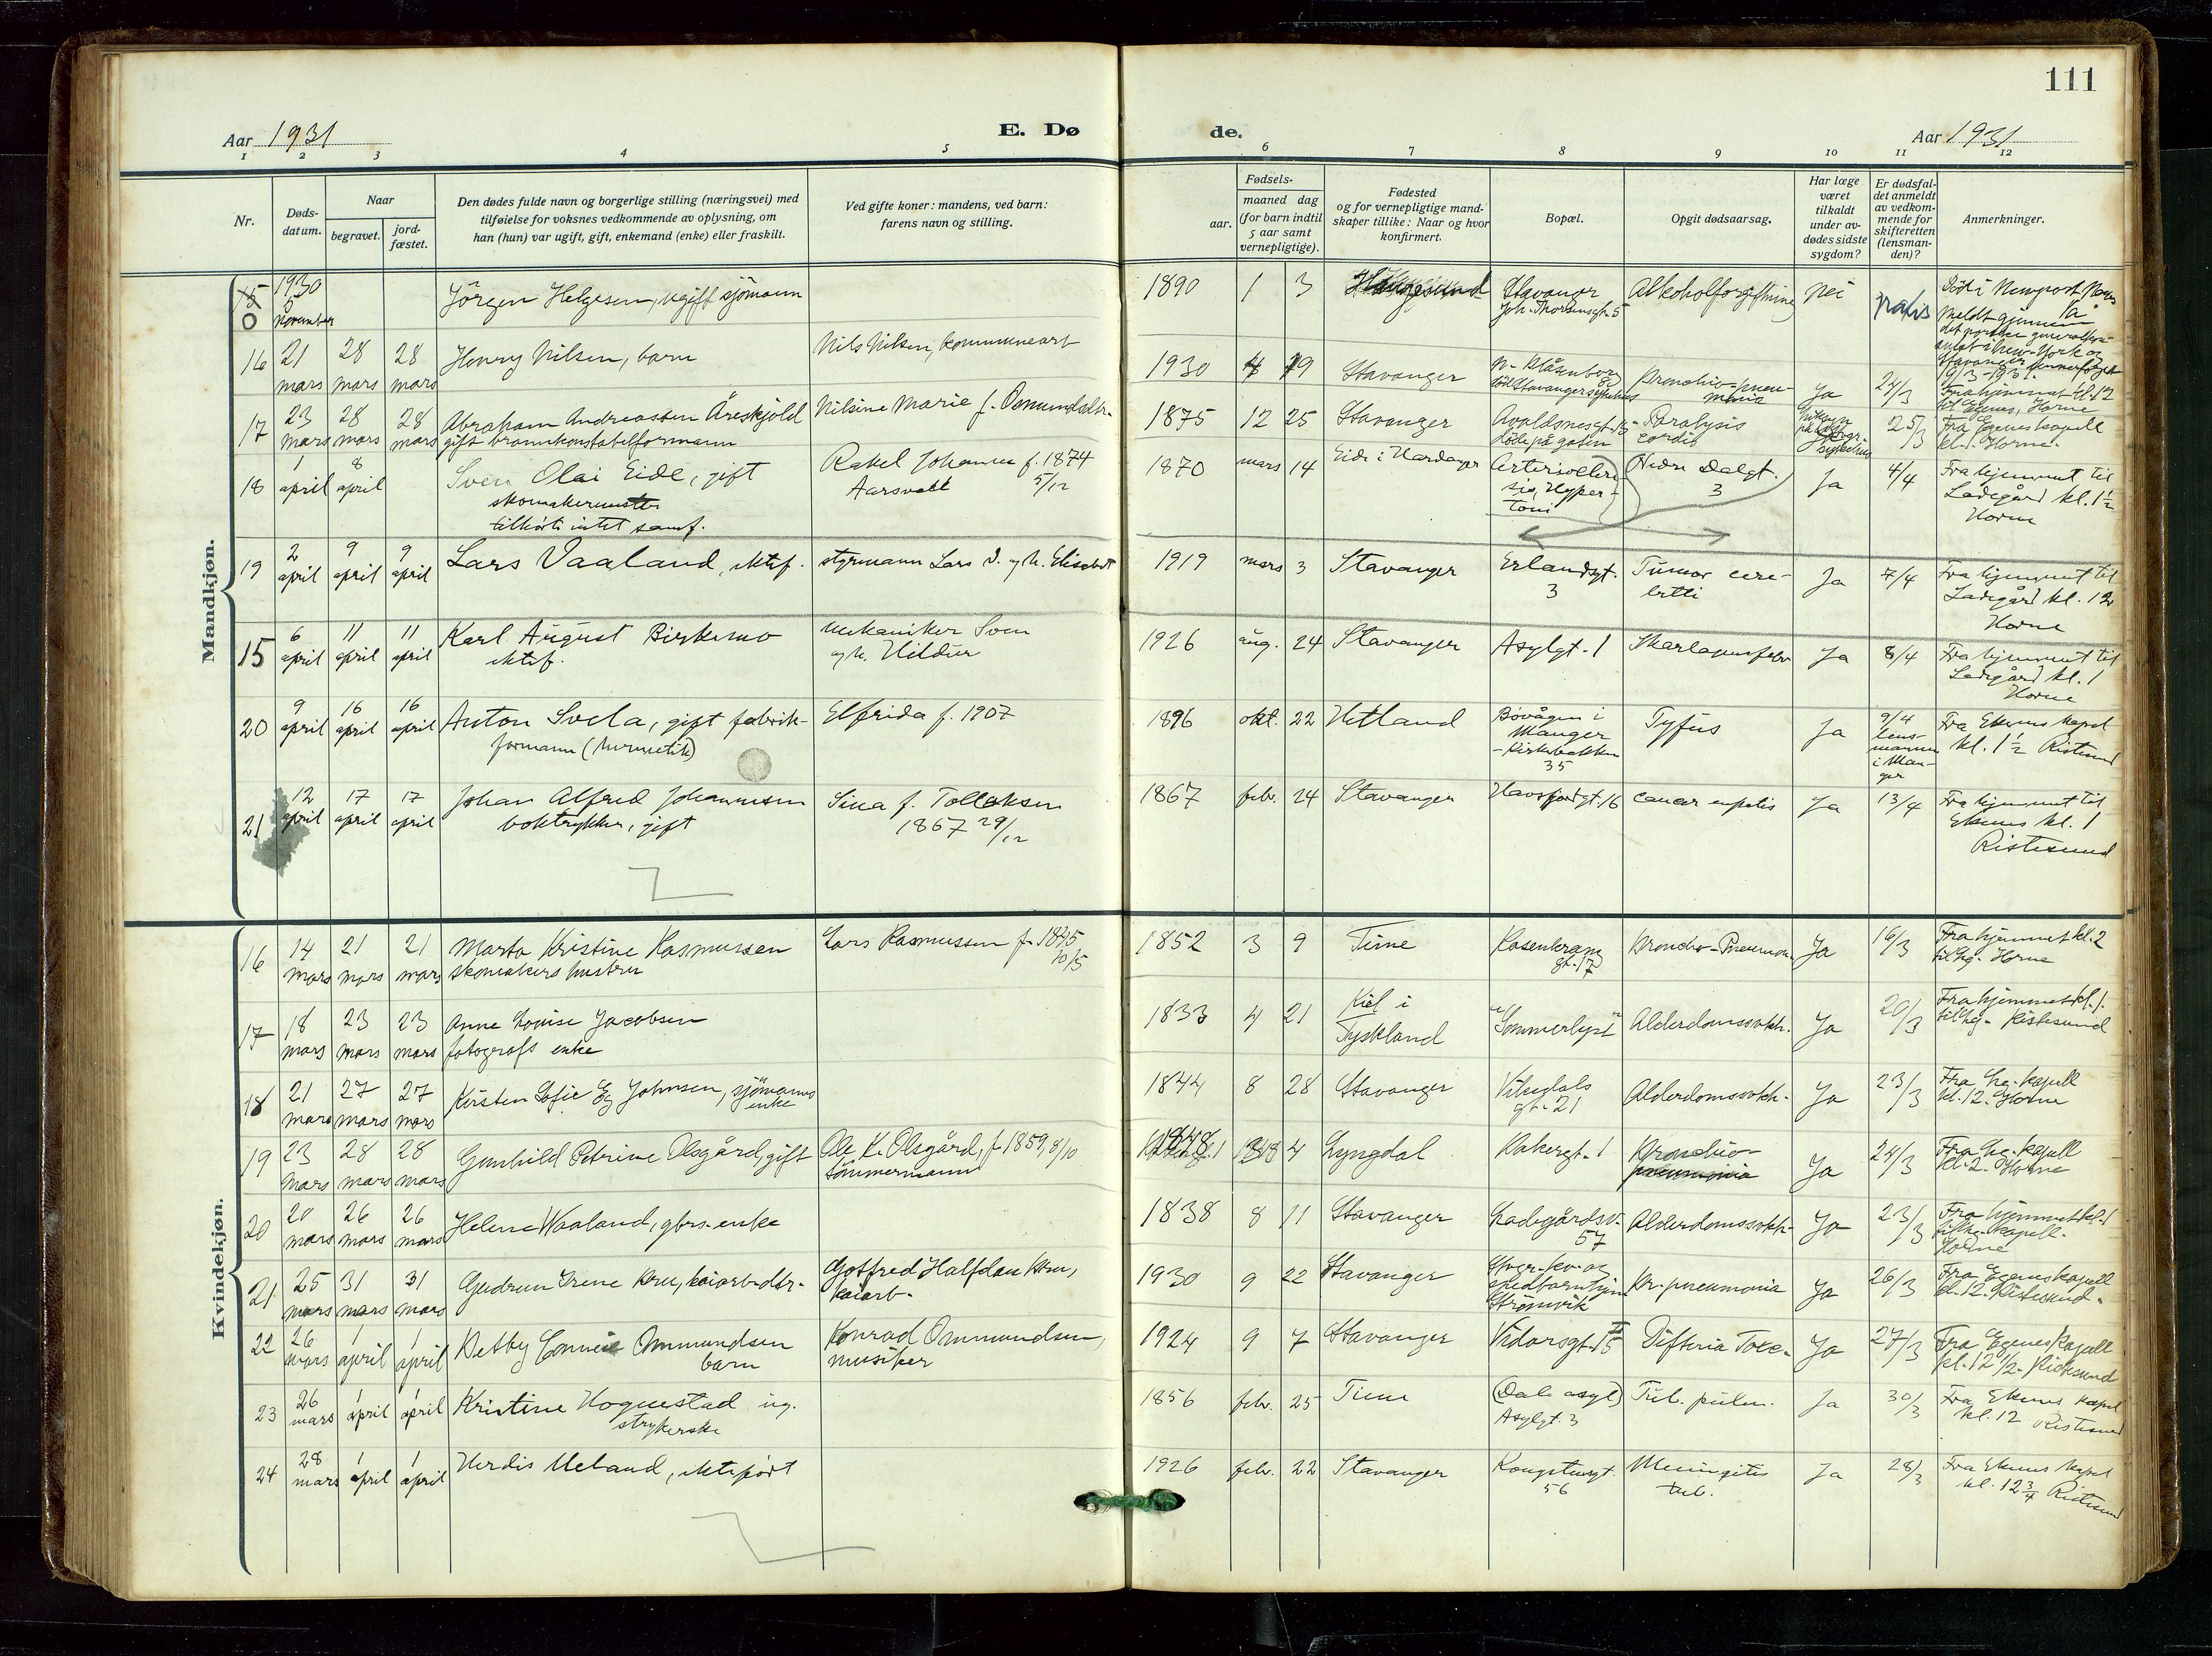 111
Aar 1931
E. Dø
de.
Aar 1931
1 2 3 4 5 6 7 8 9 10 11 12
Nr.
Døds-
datum.
Naar
begravet.
jord-
fæstet.
Den dødes fulde navn og borgerlige stilling (næringsvei) med
tilføielse for voksnes vedkommende av oplysning, om
han (hun) var ugift, gift, enkemand (enke) eller fraskilt.
Ved gifte koner: mandens, ved barn:
farens navn og stilling.
Fødsels-
aar.
maaned dag
(for barn indtil
5 aar samt
vernepligtige).
Fødested
og for vernepligtige mand-
skaper tillike: Naar og hvor
konfirmert.
Bopæl.
Opgit dødsaarsag.
Har læge
været
tilkaldt
under av-
dødes sidste
sygdom?
Er dødsfal-
det anmeldt
av vedkom-
mende for
skifteretten
(lensman-
den)?
Anmerkninger.
Mandkjøn.
15 0 1930 5 november Jörgen Helgesen, ugift sjömann 1890 1 3 Haugesund Stavanger Alkoholforgiftning nei
Joh. Thorsensgt. 5
16 21 mars 28 mars 28 mars Henry Nilsen, barn Nils Nilsen, kommunearb 1930 4 19 Stavanger Bronchio-pneu-monia Ja 24/3
17 23 mars 28 mars 28 mars Abraham Andreassen Äreskjold Nilsine Marie f. Osmundsdtr. 1875 12 25 Stavanger Avaldsnesgt. Paralysis 25/3 Fra Egenes kapell
gift brannkonstabelformann döde på gaten cordis kl. 1. Horne.
18 1 april 8 april Sven Olai Eide, gift Rakel Johanne f. 1874 1870 mars 14 Eide i Hardanger Arterioskle- Nedre Dalgt. Ja 4/4 Fra hjemmet til
skomakermester Aarsvoll 5/12 sis, Hyper- 3 Ladegård kl. 1½
tilhörte intet samf. toni Horne
19 2 april 9 april 9 april Lars Vaaland, ektef. styrmann Lars V. og h. Elisabet 1919 mars 3 Stavanger Erlandsgt. Tumor cere- Ja 7/4 Fra hjemmet til
3 Ladegård kl. 12
Horne
15 6 april 11 april 11 april Karl August Birkemo mekaniker Sven 1926 aug. 24 Stavanger Asylgt. 1 Skarlagensfeber Ja 8/4 Fra hjemmet til
ektef. og h. Hildur Ladegård kl. 1
Horne
20 9 april 16 april 16 april Anton Svela, gift fabrik- Elfrida f. 1907 1896 okt. 22 Hetland Bövågen i Tyfus Ja 9/4 Fra Ekenes kapel
formann (hermetik) Manger lens- kl. 1½ Ristesund
- Kirkebakken mannen
35 i Man-
ger
21 12 april 17 april 17 april Johan Alfred Johannesen Sina f. Tollaksen 1867 febr. 24 Stavanger Havsfjordgt. 16 cancer Ja 13/4 Fra hjemmet til
boktrykker, gift 1867 29/12 Ekenes kl. 1
Ristesund
Kvindekjøn.
16 14 mars 21 mars 21 mars Marta Kristine Rasmussen Lars Rasmussen f. 1845 1852 3 9 Time Rosenkrantz Broncho-Pneumon. Ja 16/3 Fra hjemmet kl. 2
skomakers hustru 10/5 gt. 17 til kg. Horne
17 18 mars 23 mars 23 mars Anne Lovise Jacobsen 1833 4 21 Kiel i "Sommerlyst" Alderdomssvakh. Ja 20/3 Fra hjemmet kl. 1.
fotografs enke Tyskland til kg. Ristesund
18 21 mars 27 mars 27 mars Kirsten Sofie Eg Johnsen, sjömanns 1844 8 28 Stavanger Vibedals Alderdomssvakh. Ja 23/3 Fra Eg. kapell
enke gt. 21 kl. 12. Horne
19 23 mars 28 mars 28 mars Gunhild Petrine Olsgård, gift Ole K. Olsgård, f. 1859, 8/10 1848 4 Lyngdal Bakergt. 1 Bronchio- Ja 24/3 Fra Eg. kapell
tömmermann pneumonia kl. 2. Horne
20 20 mars 26 mars 26 mars Helene Waaland, gbrs. enke 1838 8 11 Stavanger Ladegårdsv. Alderdomssvakh. Ja 23/3 Fra hjemmet kl. 1
57 Horne
21 25 mars 31 mars 31 mars Gudrun Irene, kaiarb. dtr. Gotfred Halfdan, 1930 9 22 Stavanger spedbarnhjem Br.pneumonia Ja 26/3 Fra Egenes kapell
kaiarb. Strömvik kl. 12. Ristesund.
22 26 mars 1 april 1 april Betsy Ommundsen Konrad Ommundsen, 1924 9 7 Stavanger Vidarsgt. 15 Difteria Toxe. Ja 27/3 Fra Egenes kapell
barn musiker kl. 12 1/2. Ristesund
23 26 mars 1 april 1 april Kristine Hognestad ug. 1856 febr. 25 Time (Dale asyl) Tub. pulm. Ja 30/3 Fra Ekenes kapel
strykerske Asylgt. 3 kl. 12 Ristesund
24 28 mars 1 april 1 april Herdis Meland, ektefödt 1926 febr. 22 Stavanger Kongstensgt. Meningitis Ja 28/3 Fra Ekenes kapel
56 tub. kl. 12¾ Ristesund